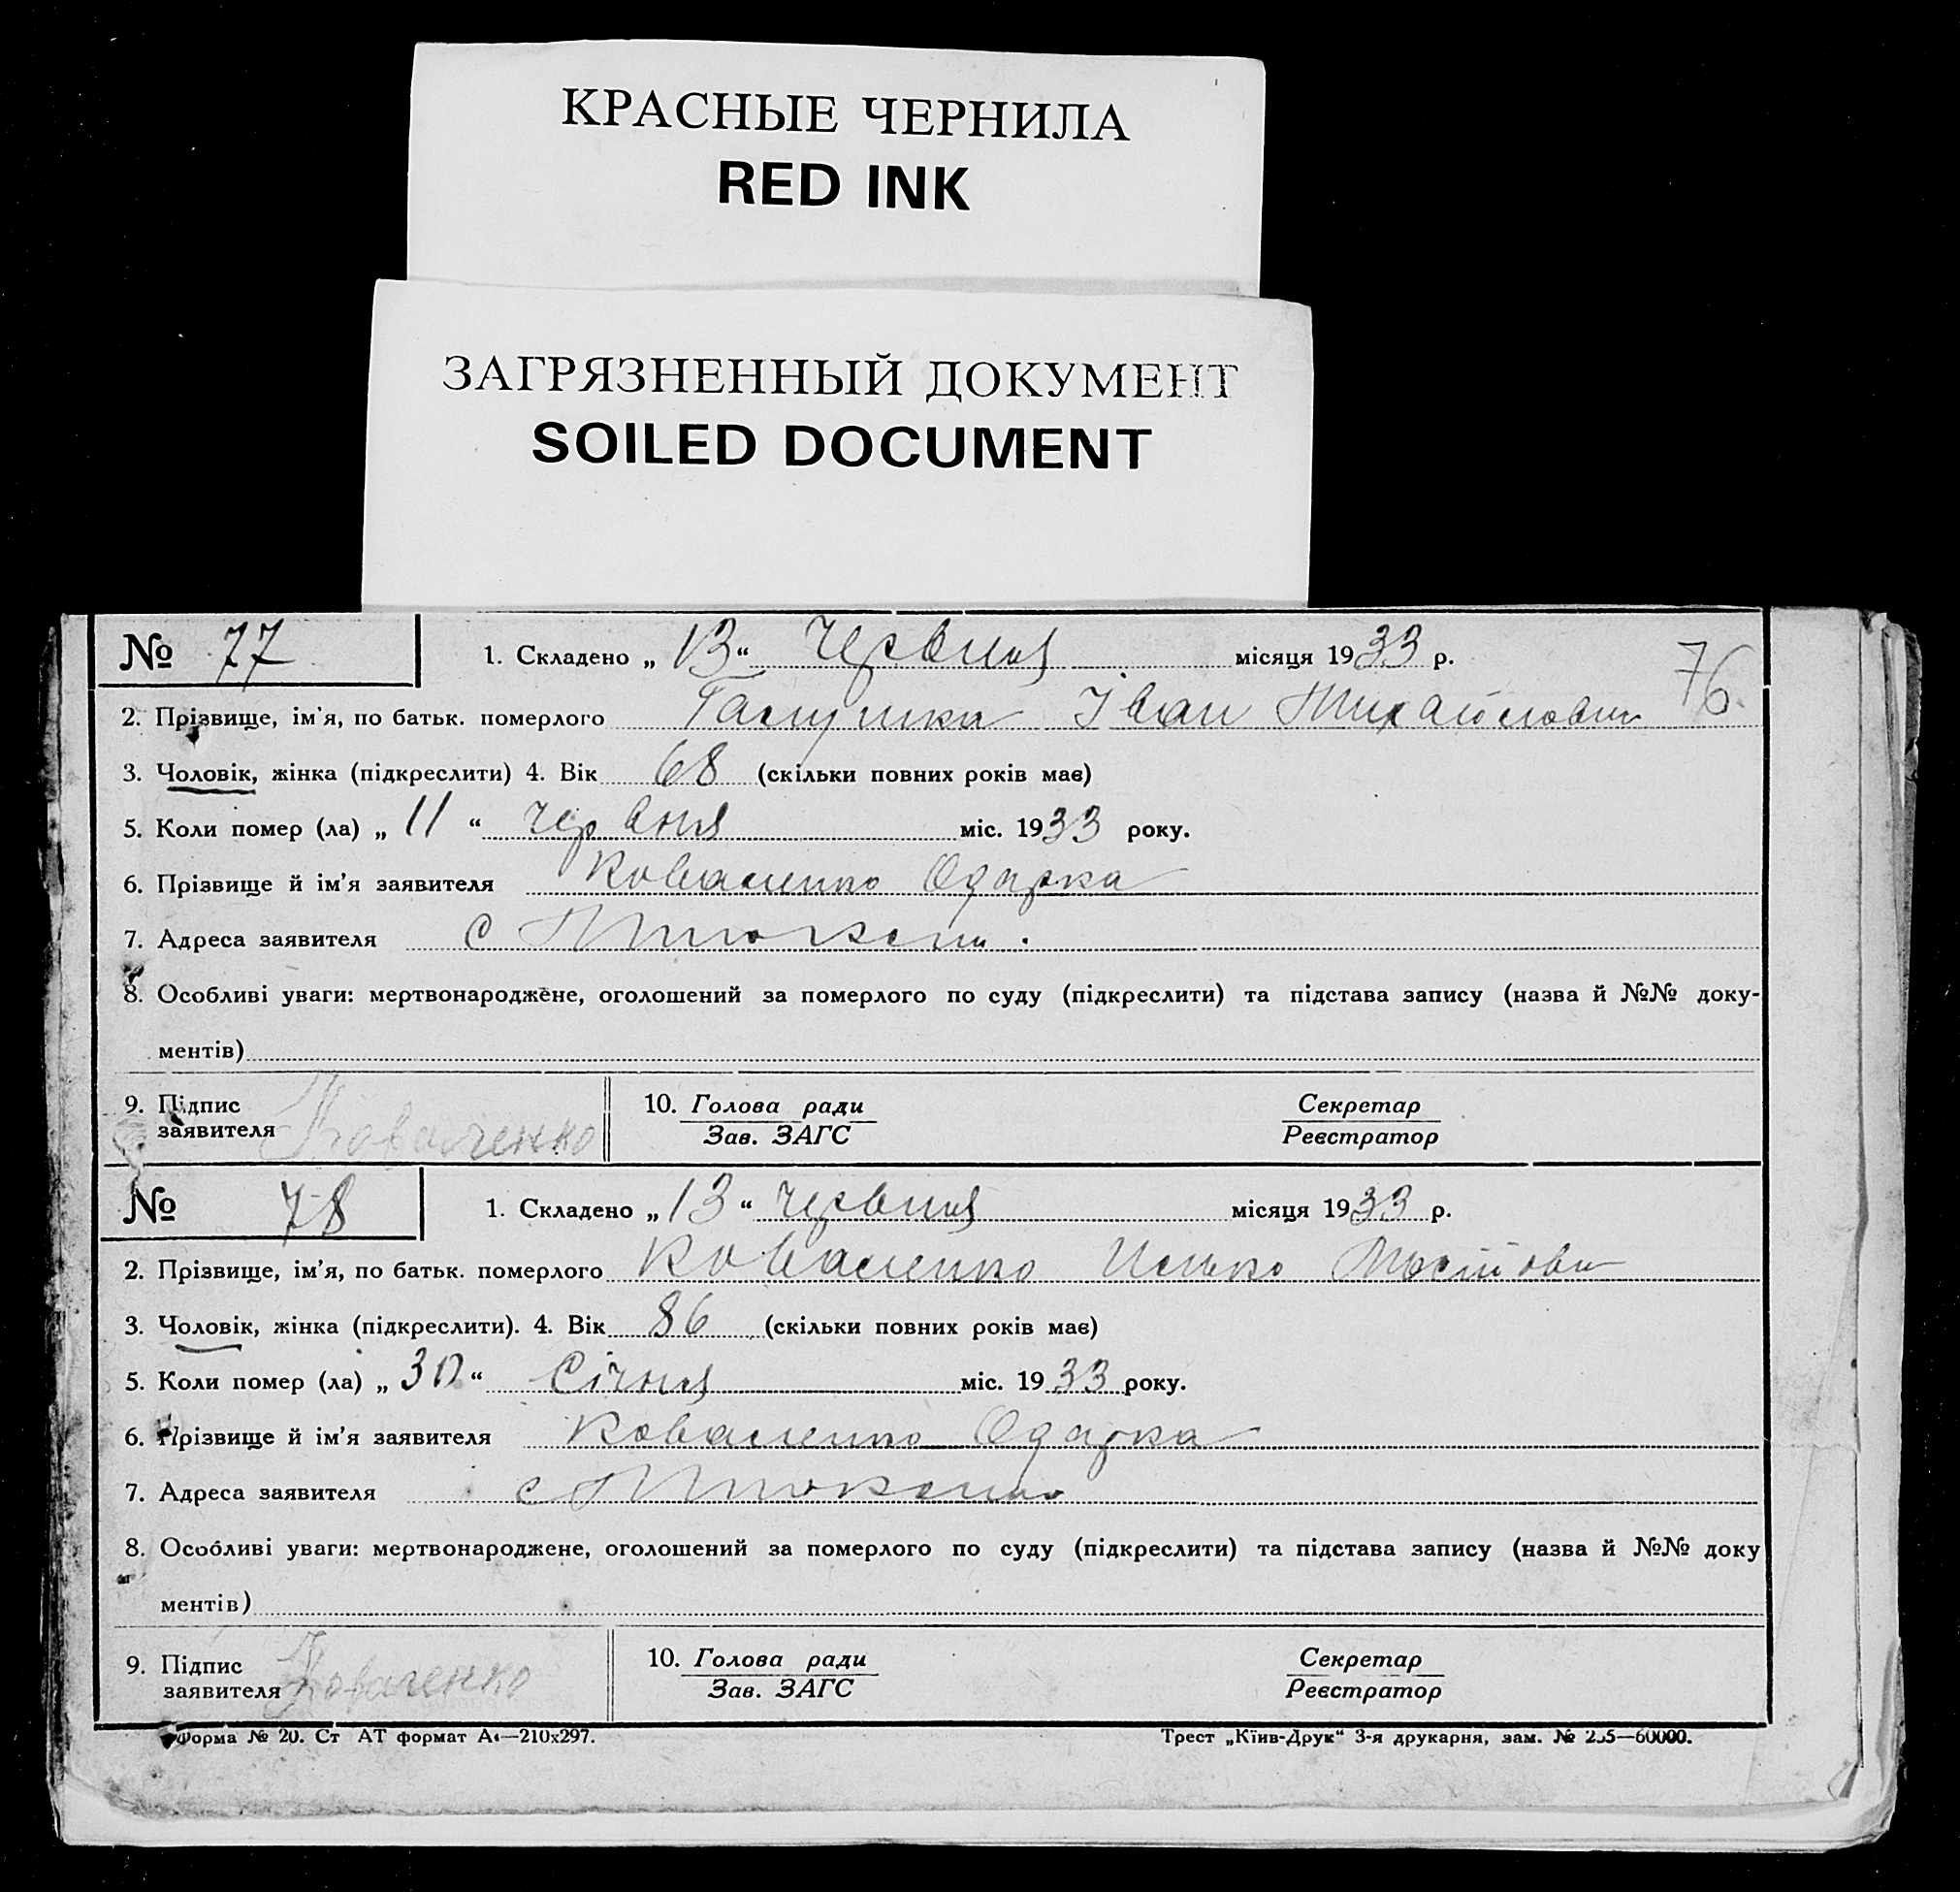 КРАСНЫЕ ЧЕРНИЛА
RED INK
ЗАГРЯЗНЕННЫЙ ДОКУМЕНТ
SOILED DOCUMENT
№ 77 1. Складено „ 13 “ Червня місяця 1933 р.
76
2. Прізвище, ім'я, по батьк. померлого Галушка Іван Михайлович
3. Чоловік, жінка (підкреслити) 4. Вік 68 (скільки повних років має)
5. Коли помер (ла) „ 11 “ червня міс. 1933 року.
6. Прізвище й ім'я заявителя Коваленко Одарка
7. Адреса заявителя с
8. Особливі уваги: мертвонароджене, оголошений за померлого по суду (підкреслити) та підстава запису (назва й №№ доку-
ментів)
9. Підпис заявителя Коваленко 10. Голова ради Секретар
Зав. ЗАГС Реєстратор
№ 78 1. Складено „ 13 “ Червня місяця 1933 р.
2. Прізвище, ім'я, по батьк. померлого Коваленко
3. Чоловік, жінка (підкреслити). 4. Вік 86 (скільки повних років має)
5. Коли помер (ла) „ 30 “ Січня міс. 1933 року.
6. Прізвище й ім'я заявителя Коваленко Одарка
7. Адреса заявителя с
8. Особливі уваги: мертвонароджене, оголошений за померлого по суду (підкреслити) та підстава запису (назва й №№ доку
ментів)
9. Підпис заявителя Коваленко 10. Голова ради Секретар
Зав. ЗАГС Реєстратор
Форма № 20. Ст АТ формат А4—210х297. Трест „Київ-Друк“ 3-я друкарня, зам. № —60000.